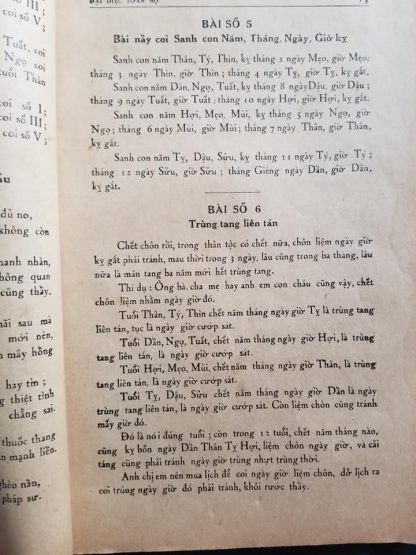 ĐẠI DIỆC TOÀN BỘ 75
số III ;
Tuất, coi
Ngọ coi
tuổi Thân
coi số I;
coi số III ;
coi số V ;
ấu
đủ no,
không còn
thanh nhân,
không quan
cũng thấy.
mãi sau mà
mới nên,
mây hồng
hay tin ;
thiệt tình
chẳng sai.
thuốc thang
mạnh liền.
nghèo nàn,
pháp sư.
BÀI SỐ 5
Bài nầy coi Sanh con Năm, Tháng, Ngày, Giờ kỵ
Sanh con năm Thân, Tý, Thìn, kỵ tháng 2 ngày Mẹo, giờ Mẹo;
tháng 3 ngày Thìn, giờ Thìn ; tháng 4 ngày Tỵ, giờ Tỵ, kỵ gắt.
Sanh con năm Dần, Ngọ, Tuất, kỵ tháng 8 ngày Dậu, giờ Dậu ;
tháng 9 ngày Tuất, giờ Tuất ; tháng 10 ngày Hợi, giờ Hợi, kỵ gắt.
Sanh con năm Hợi, Mẹo, Mùi, kỵ tháng 5 ngày Ngọ, giờ
Ngọ ; tháng 6 ngày Mùi, giờ Mùi ; tháng 7 ngày Thân, giờ Thân,
kỵ gắt.
Sanh con năm Tỵ, Dậu, Sửu, kỵ tháng 11 ngày Tý, giờ Tý ;
tháng 12 ngày Sửu, giờ Sửu ; tháng Giêng ngày Dần, giờ Dần,
kỵ gắt.
BÀI SỐ 6
Trùng tang liên tán
Chết chôn rồi, trong thân tộc có chết nữa, chôn liệm ngày giờ
kỵ gắt phải tránh, mau thời trong 3 ngày, lâu cũng trong ba tháng, lâu
nữa là mãn tang ba năm mới hết trùng tang.
Thí dụ : Ông bà, cha mẹ hay anh em con cháu cũng vậy, chết
chôn liệm nhằm ngày giờ đó.
Tuổi Thân, Tý, Thìn chết năm tháng ngày giờ Tỵ là trùng tang
liên tán, tục là ngày giờ cướp sát.
Tuổi Dần, Ngọ, Tuất, chết năm tháng ngày giờ Hợi, là trùng
tang liên tán, là ngày giờ cướp sát.
Tuổi Hợi, Mẹo, Mùi, chết năm tháng ngày giờ Thân, là trùng
tang liên tán, là ngày giờ cướp sát.
Tuổi Tỵ, Dậu, Sửu chết năm tháng ngày giờ Dần là ngày
trùng tang liên tán, là ngày giờ cướp sát. Còn liệm chôn cũng tránh
mấy giờ đó.
Đó là nói đúng tuổi ; còn trong 12 tuổi, chết năm tháng nào,
cũng kỵ bốn ngày Dần Thân Tỵ Hợi, liệm chôn ngày giờ, và cải
táng cũng phải tránh ngày giờ trùng nhựt trùng thời.
Anh chị em nên mua lịch để coi ngày giờ liệm chôn, dở lịch ra
coi trúng ngày giờ đó phải tránh, khỏi rước thầy.